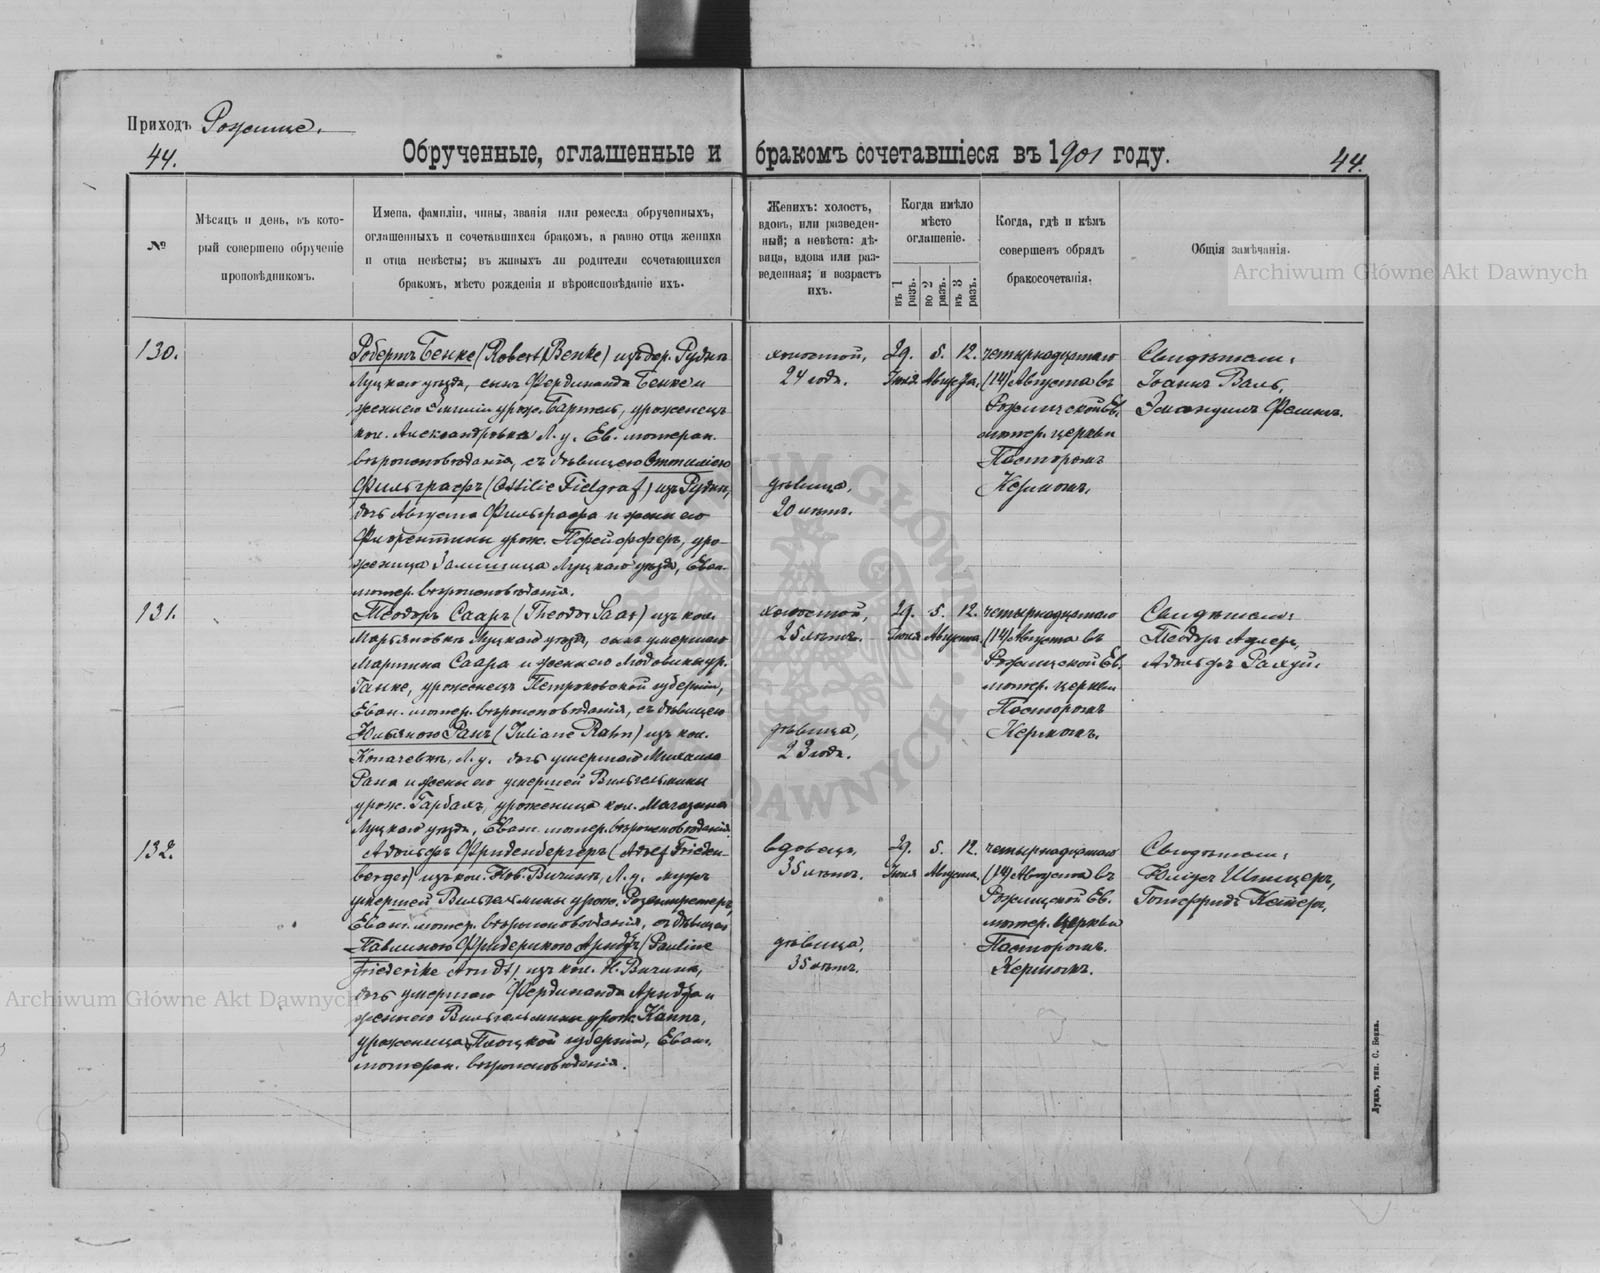 Приходъ Рожище.
44.
Обрученные, оглашенные и бракомъ сочетавшіеся въ 1901 году.
44.
№
Мѣсяцъ и день, въ кото-
рый совершено обрученіе
проповѣдникомъ.
Имена, фамиліи, чины, званія или ремесла обрученныхъ,
оглашенныхъ и сочетавшихся бракомъ, а равно отца жениха
и отца невѣсты; въ живыхъ ли родители сочетающихся
бракомъ, мѣсто рожденія и вѣроисповѣданіе ихъ.
Женихъ: холостъ,
вдовъ, или разведен-
ный; а невѣста: дѣ-
вица, вдова или раз-
веденная; и возрастъ
ихъ.
Когда имѣло
мѣсто
оглашеніе.
въ 1 разъ.
во 2 разъ.
въ 3 разъ.
Когда, гдѣ и кѣмъ
совершенъ обрядъ
бракосочетанія.
Общія замѣчанія.
130.
Робертъ Бенке (Robert Benke) изъ дер. Рудни
Луцкаго уѣзда, сынъ Фердинанда Бенке и
жены его Эмиліи урож. Бартель, уроженецъ
кол. Александровка Л. у. Ев. лютеран.
вѣроисповѣданія, съ дѣвицею Оттиліею
Фильграфъ (Ottilie Fielgraf) изъ Рудни,
дочь Августа Фильграфа и жены его
Флорентины урож. Пфейфферъ, уро-
женица Луцкаго уѣзда, Еван.
лютер. вѣроисповѣданія.
холостой,
24 года.
дѣвица,
20 лѣтъ.
29. 5. 12.
Іюля Августа.
четырнадцатаго
(14) Августа въ
Рожищской Ев.
лютер. церкви
Пасторомъ
Кермомъ.
Свидѣтели:
Іоаннъ Валь,
Эмануилъ
131.
Теодоръ Сааръ (Theodor Saar) изъ кол.
Марьяновки Луцкаго уѣзда, сынъ умершаго
Мартина Саара и жены его Людовики ур.
Ганке, уроженецъ Петроковской губерніи,
Еван. лютер. вѣроисповѣданія, съ дѣвицею
Юльяною Ранъ (Juliane Rahn) изъ кол.
Копачевки, Л. у. дочь умершаго Михаила
Рана и жены его умершей Вильгельмины
урож. Гарбахъ, уроженица кол.
Луцкаго уѣзда, Еван. лютер. вѣроисповѣданія.
холостой,
25 лѣтъ.
дѣвица,
23 года.
29. 5. 12.
Іюля Августа.
четырнадцатаго
(14) Августа въ
Рожищской Ев.
лютер. церкви
Пасторомъ
Кермомъ.
Свидѣтели:
Теодоръ Адлеръ,
Адольфъ
132.
Адольфъ Фриденбергеръ (Adolf Frieden-
berger) изъ кол. Нов. Вичини, Л. у. мужъ
умершей Вильгельмины урож.
Еван. лютер. вѣроисповѣданія, съ дѣвицею
Павлиною Фридерикою Арндтъ (Pauline
Friederike Arndt) изъ кол. Н. Вичини,
дочь умершаго Фердинанда Арндта и
жены его Вильгельмины урож.
уроженица Плоцкой губерніи, Еван.
лютеран. вѣроисповѣданія.
вдовецъ,
35 лѣтъ.
дѣвица,
35 лѣтъ.
29. 5. 12.
Іюля Августа.
четырнадцатаго
(14) Августа въ
Рожищской Ев.
лютер. церкви
Пасторомъ.
Кермомъ.
Свидѣтели:
Юліусъ
Готфридъ
Луцкъ, тип. С. Бокна.
Archiwum Główne Akt Dawnych
Archiwum Główne Akt Dawnych